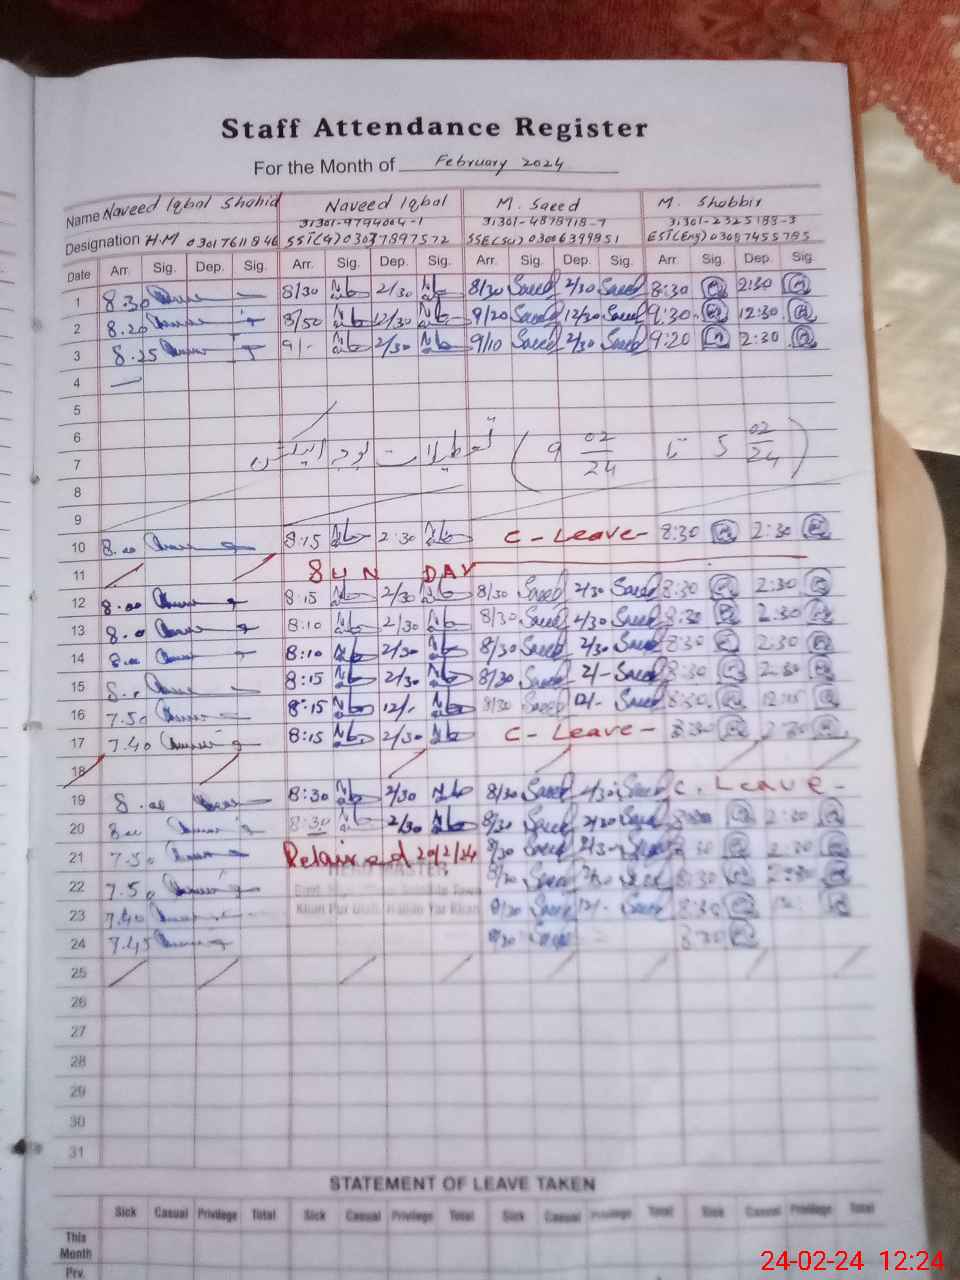 Staff Attendance Register
For the Month of February 2024
Name Naveed Iqbal Shahid Naveed Iqbal M. Saeed M. Shabbir
31301-9794004-1 31301-4878918-7 31301-2325188-3
Designation H.M 03017611846 SST(G) 03037897572 SSE(Sci) 03006399851 EST(Eng) 03087455785
Date Arr. Sig. Dep. Sig. Arr. Sig. Dep. Sig. Arr. Sig. Dep. Sig. Arr. Sig. Dep. Sig.
1 8.30 8/30 2/30 8/30 Saeed 2/30 Saeed 8:30 2:30
2 8.20 8/50 12/30 9/20 Saeed 12/20 Saeed 9:30 12:30
3 8.25 9/- 2/30 9/10 Saeed 2/30 Saeed 9:20 2:30
4
5
6
7 تعطیلات بوجہ الیکشن (5 02/24 تا 9 02/24)
8
9
10 8.00 8:15 2:30 C-Leave- 8:30 2:30
11 SUN DAY
12 8.00 8:15 2/30 8/30 Saeed 2/30 Saeed 8:30 2:30
13 8.0 8:10 2/30 8/30 Saeed 2/30 Saeed 8:30 2:30
14 8.00 8:10 2/30 8/30 Saeed 2/30 Saeed 8:30 2:30
15 8:15 2/30 8/30 Saeed 2/- Saeed 8:30 2:30
16 7.50 8:15 12/- 8/30 Saeed 12/- Saeed 8:30
17 7.40 8:15 2/30 C-Leave- 8:30 2:30
18
19 8.00 8:30 2/30 8/30 Saeed 2/30 Saeed C.Leave-
20 8.00 8:30 2/30 8/30 Saeed 2/30 Saeed 2:30
21 7.50 20/2/24 8/30 Saeed 8:30 2:30
HEAD MASTER
22 7.50 Saeed 8:30 2:30
23 7.40 Saeed 12/- Saeed 8:30
24 7.45 8:30
25
26
27
28
29
30
31
STATEMENT OF LEAVE TAKEN
Sick Casual Privilege Total Sick Casual Privilege Total Sick Casual Privilege Total Sick Casual Privilege Total
This
Month
Prv.
24-02-24 12:24